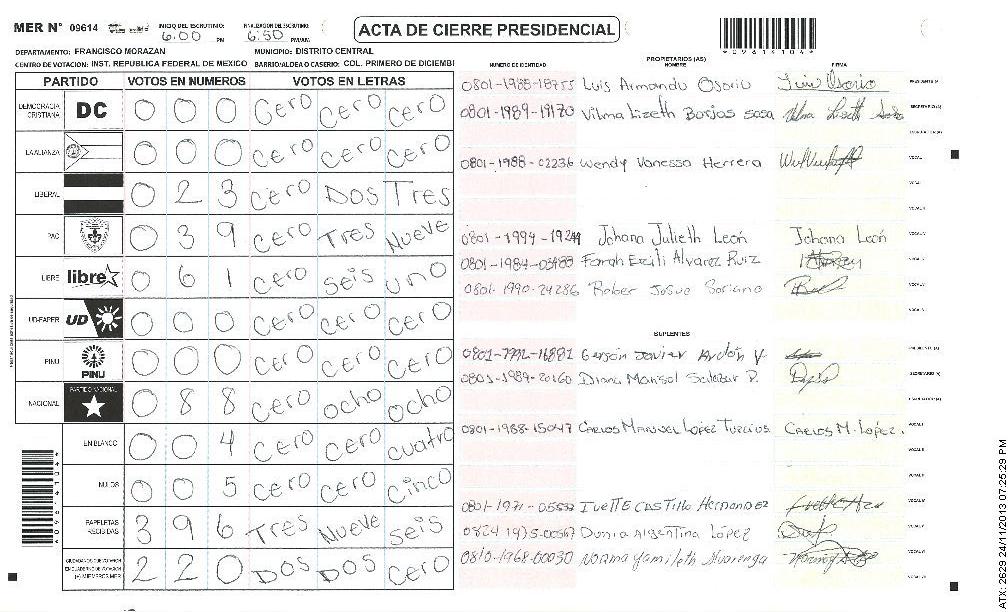 MER N° 09614
INICIO DEL ESCRUTINIO: 6:00 PM
FINALIZACION DEL ESCRUTINIO: 6:50 PM/AM.
ACTA DE CIERRE PRESIDENCIAL
DEPARTAMENTO: FRANCISCO MORAZAN MUNICIPIO: DISTRITO CENTRAL
CENTRO DE VOTACION: INST. REPUBLICA FEDERAL DE MEXICO BARRIO/ALDEA O CASERIO: COL. PRIMERO DE DICIEMBR
PARTIDO VOTOS EN NUMEROS VOTOS EN LETRAS
DEMOCRACIA CRISTIANA DC 0 0 0 Cero Cero Cero
LA ALIANZA 0 0 0 Cero Cero Cero
LIBERAL 0 2 3 Cero Dos Tres
PAC 0 3 9 Cero Tres Nueve
LIBRE libre 0 6 1 Cero Seis uno
UD-FAPER UD 0 0 0 Cero Cero Cero
PINU PINU 0 0 0 Cero Cero Cero
NACIONAL PARTIDO NACIONAL 0 8 8 Cero ocho ocho
EN BLANCO 0 0 4 Cero Cero cuatro
NULOS 0 0 5 Cero Cero Cinco
PAPELETAS RECIBIDAS 3 9 6 Tres Nueve seis
CIUDADANOS QUE VOTARON EN CUADERNO DE VOTACION (+) MIEMBROS MER 2 2 0 Dos Dos Cero
PROPIETARIOS (AS)
NUMERO DE IDENTIDAD NOMBRE FIRMA
0801-1988-18755 Luis Armando Osorio Luis Osorio PRESIDENTE (A)
0801-1989-19170 Vilma Lizeth Borjas sosa Vilma Lizeth SECRETARIO (A)
ESCRUTADOR (A)
0801-1988-02236 Wendy Vanessa Herrera VOCAL I
VOCAL II
VOCAL III
0801-1994-19244 Johana Julieth León Johana León VOCAL IV
0801-1984- Farah Alvarez Ruiz VOCAL V
0801-1990-24286 Rober Josue Soriano VOCAL VI
SUPLENTES
Gerson Javier PRESIDENTE (A)
0801-1989-20160 Diana Marisol P. SECRETARIO (A)
ESCRUTADOR (A)
0801-1988-15047 CARLOS MANUEL LOPEZ TURCIOS CARLOS M. López. VOCAL I
VOCAL II
VOCAL III
0801-1971- IVETTE CASTILLO HERNANDEZ VOCAL IV
Dunia Argentina López VOCAL V
0810-1968-00030 Norma Yamileth VOCAL VI
ATX: 2629 24/11/2013 07:25:29 PM